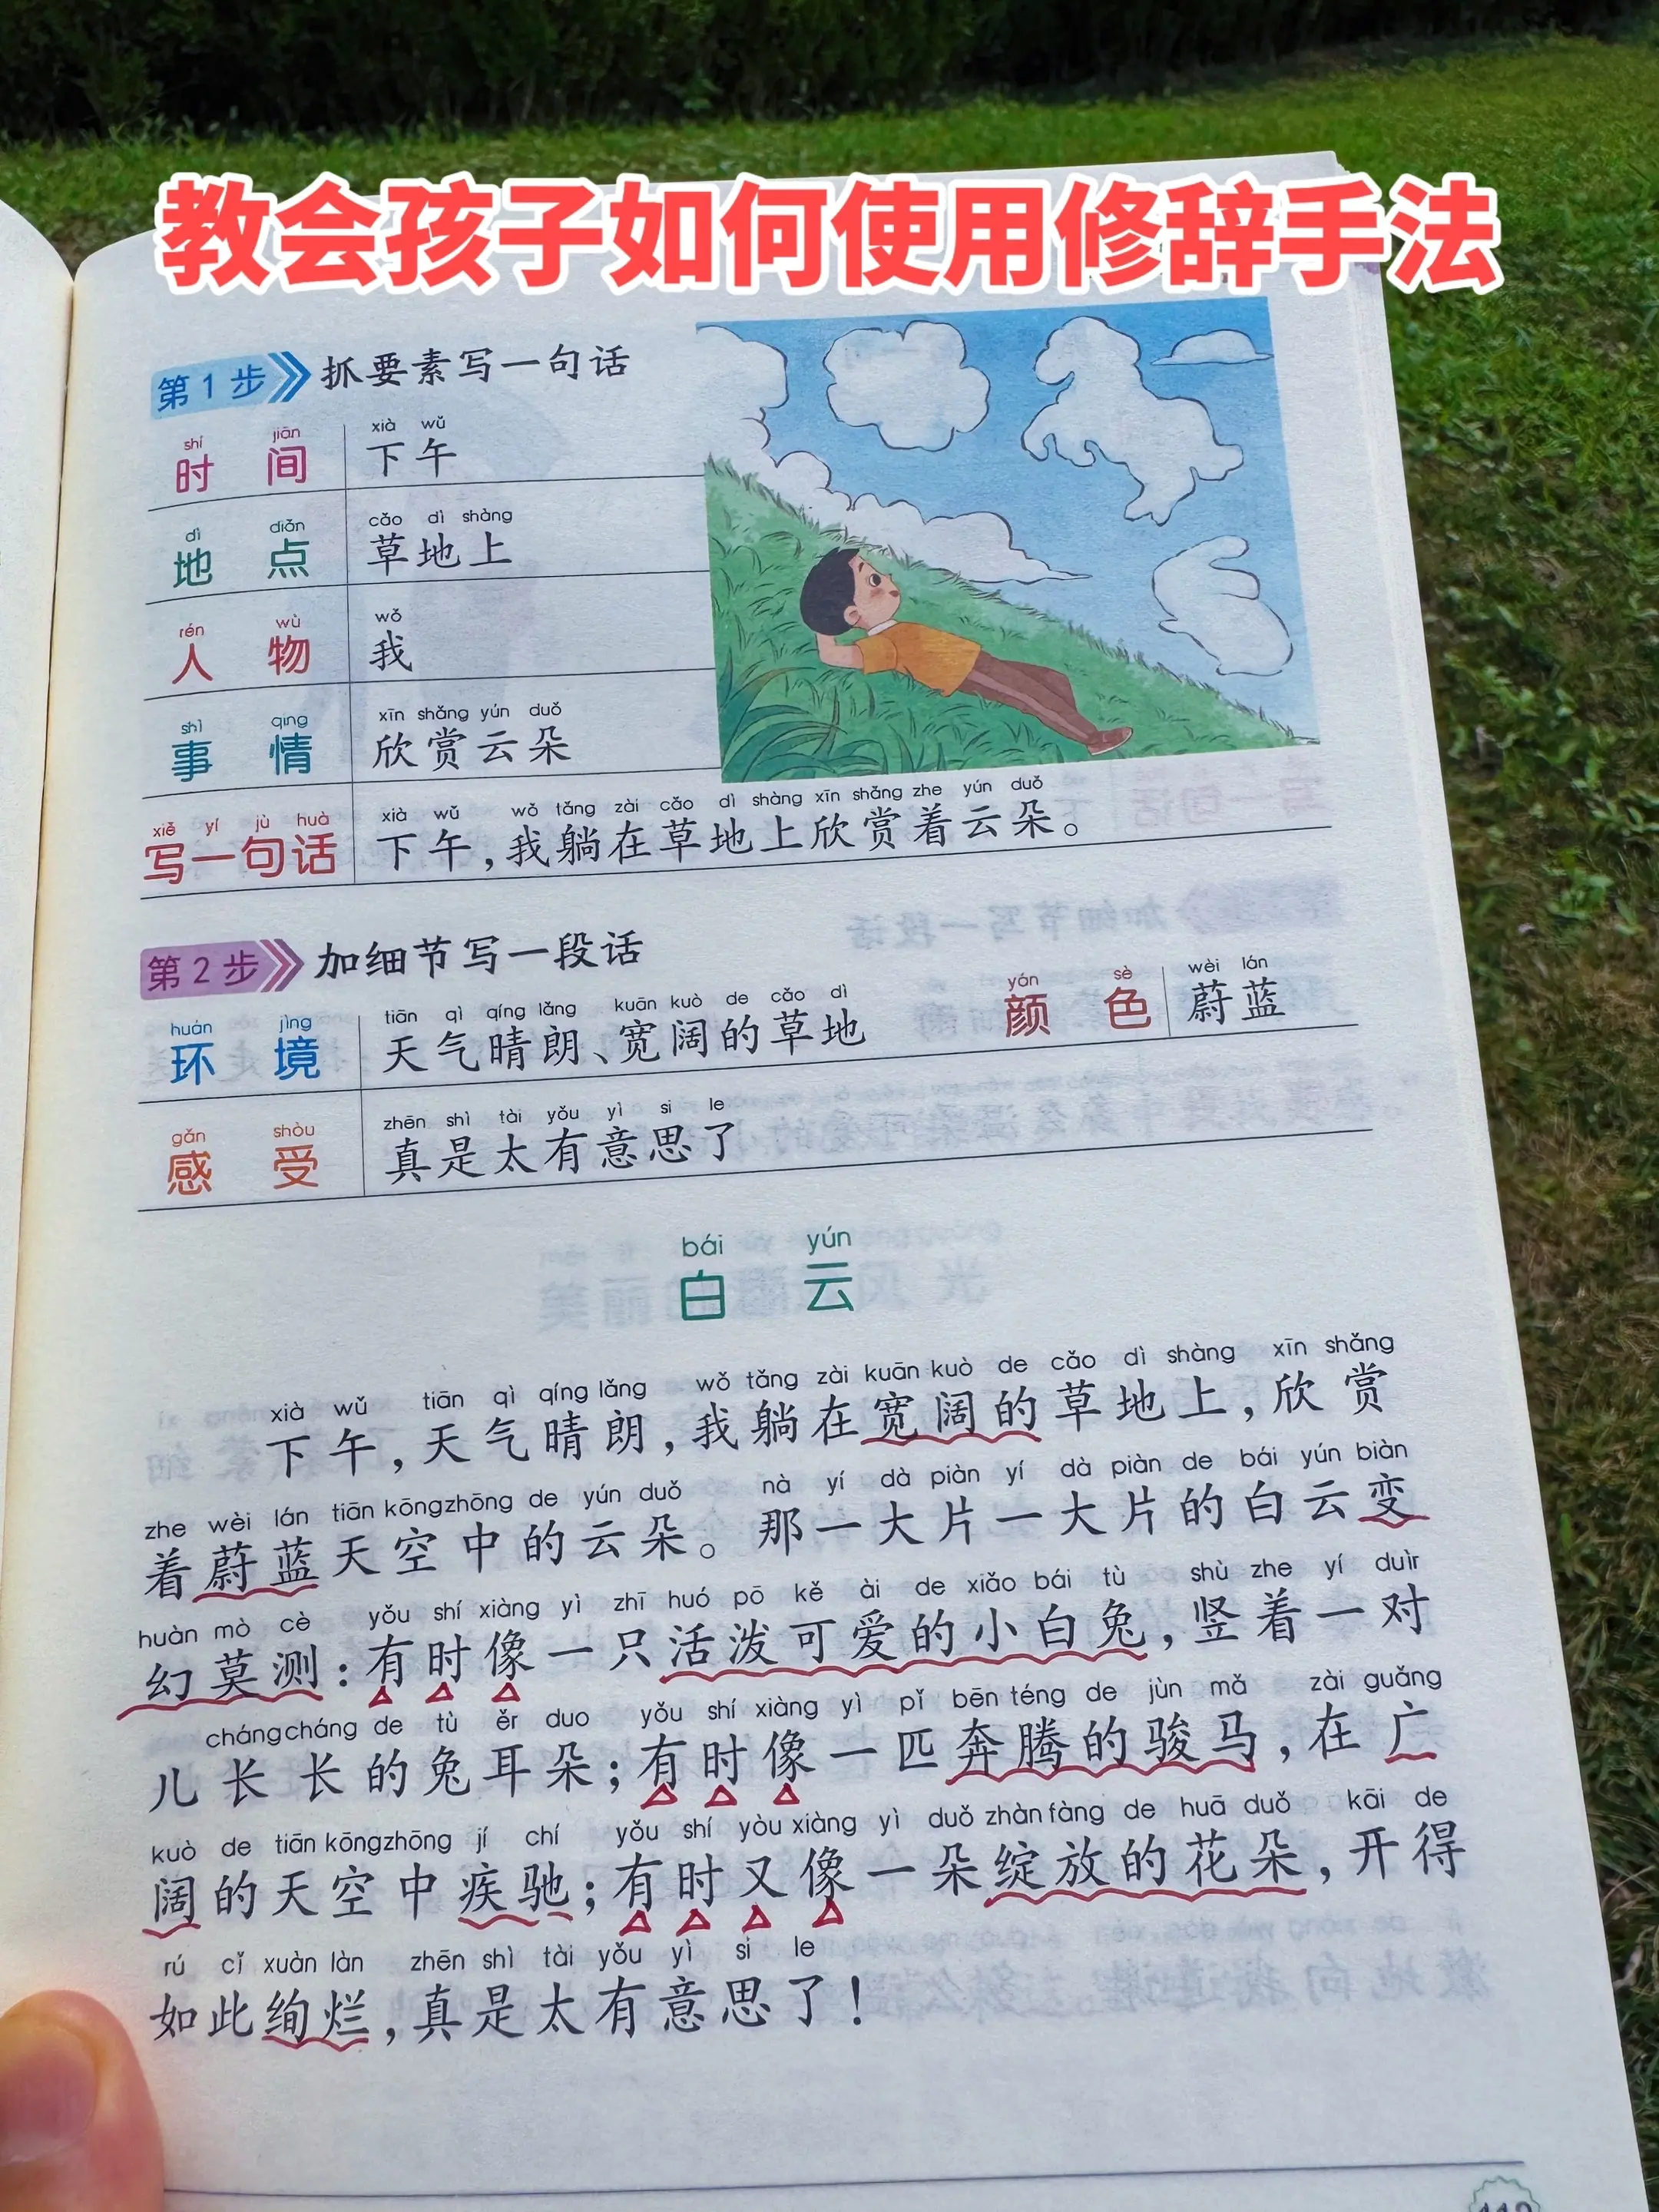 教会孩子如何使用修辞手法
第1步 抓要素写一句话
shí jiān xià wǔ
时间 下午
dì diǎn cǎo dì shàng
地点 草地上
rén wù wǒ
人物 我
shì qing xīn shǎng yún duǒ
事情 欣赏云朵
xiě yí jù huà xià wǔ wǒ tǎng zài cǎo dì shàng xīn shǎng zhe yún duǒ
写一句话 下午，我躺在草地上欣赏着云朵。
第2步 加细节写一段话
huán jìng tiān qì qíng lǎng kuān kuò de cǎo dì yán sè wèi lán
环境 天气晴朗、宽阔的草地 颜色 蔚蓝
gǎn shòu zhēn shì tài yǒu yì si le
感受 真是太有意思了
bái yún
白云
xià wǔ tiān qì qíng lǎng wǒ tǎng zài kuān kuò de cǎo dì shàng xīn shǎng
下午，天气晴朗，我躺在宽阔的草地上，欣赏
zhe wèi lán tiān kōng zhōng de yún duǒ nà yí dà piàn yí dà piàn de bái yún biàn
着蔚蓝天空中的云朵。那一大片一大片的白云变
huàn mò cè yǒu shí xiàng yì zhī huó pō kě ài de xiǎo bái tù shù zhe yí duìr
幻莫测：有时像一只活泼可爱的小白兔，竖着一对
cháng cháng de tù ěr duo yǒu shí xiàng yì pǐ bēn téng de jùn mǎ zài guǎng
儿长长的兔耳朵；有时像一匹奔腾的骏马，在广
kuò de tiān kōng zhōng jí chí yǒu shí yòu xiàng yì duǒ zhàn fàng de huā duǒ kāi de
阔的天空中疾驰；有时又像一朵绽放的花朵，开得
rú cǐ xuàn làn zhēn shì tài yǒu yì si le
如此绚烂，真是太有意思了！